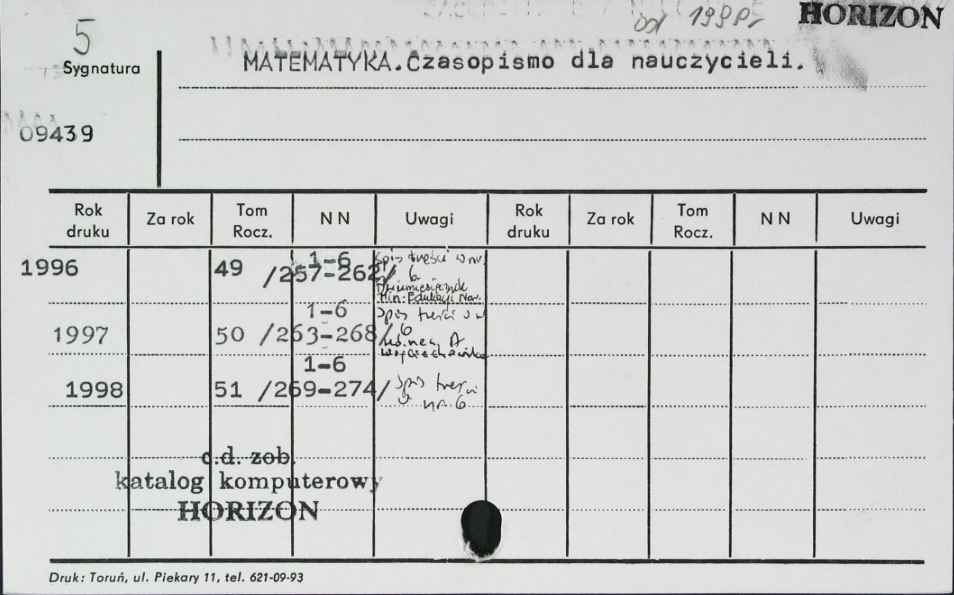 od 1998r HORIZON
5
Sygnatura
MATEMATYKA.Czasopismo dla nauczycieli.
09439
Rok druku Za rok Tom Rocz. N N Uwagi Rok druku Za rok Tom Rocz. N N Uwagi
1996 49 1-6 /257-262/ Spis treści w nr 6
Dwumiesięcznik
Min. Edukacji Nar.
1997 50 1-6 /263-268/ Spis treści w nr 6
1998 51 1-6 /269-274/ Spis treści w nr 6
c.d. zob.
katalog komputerowy
HORIZON
Druk: Toruń, ul. Piekary 11, tel. 621-09-93